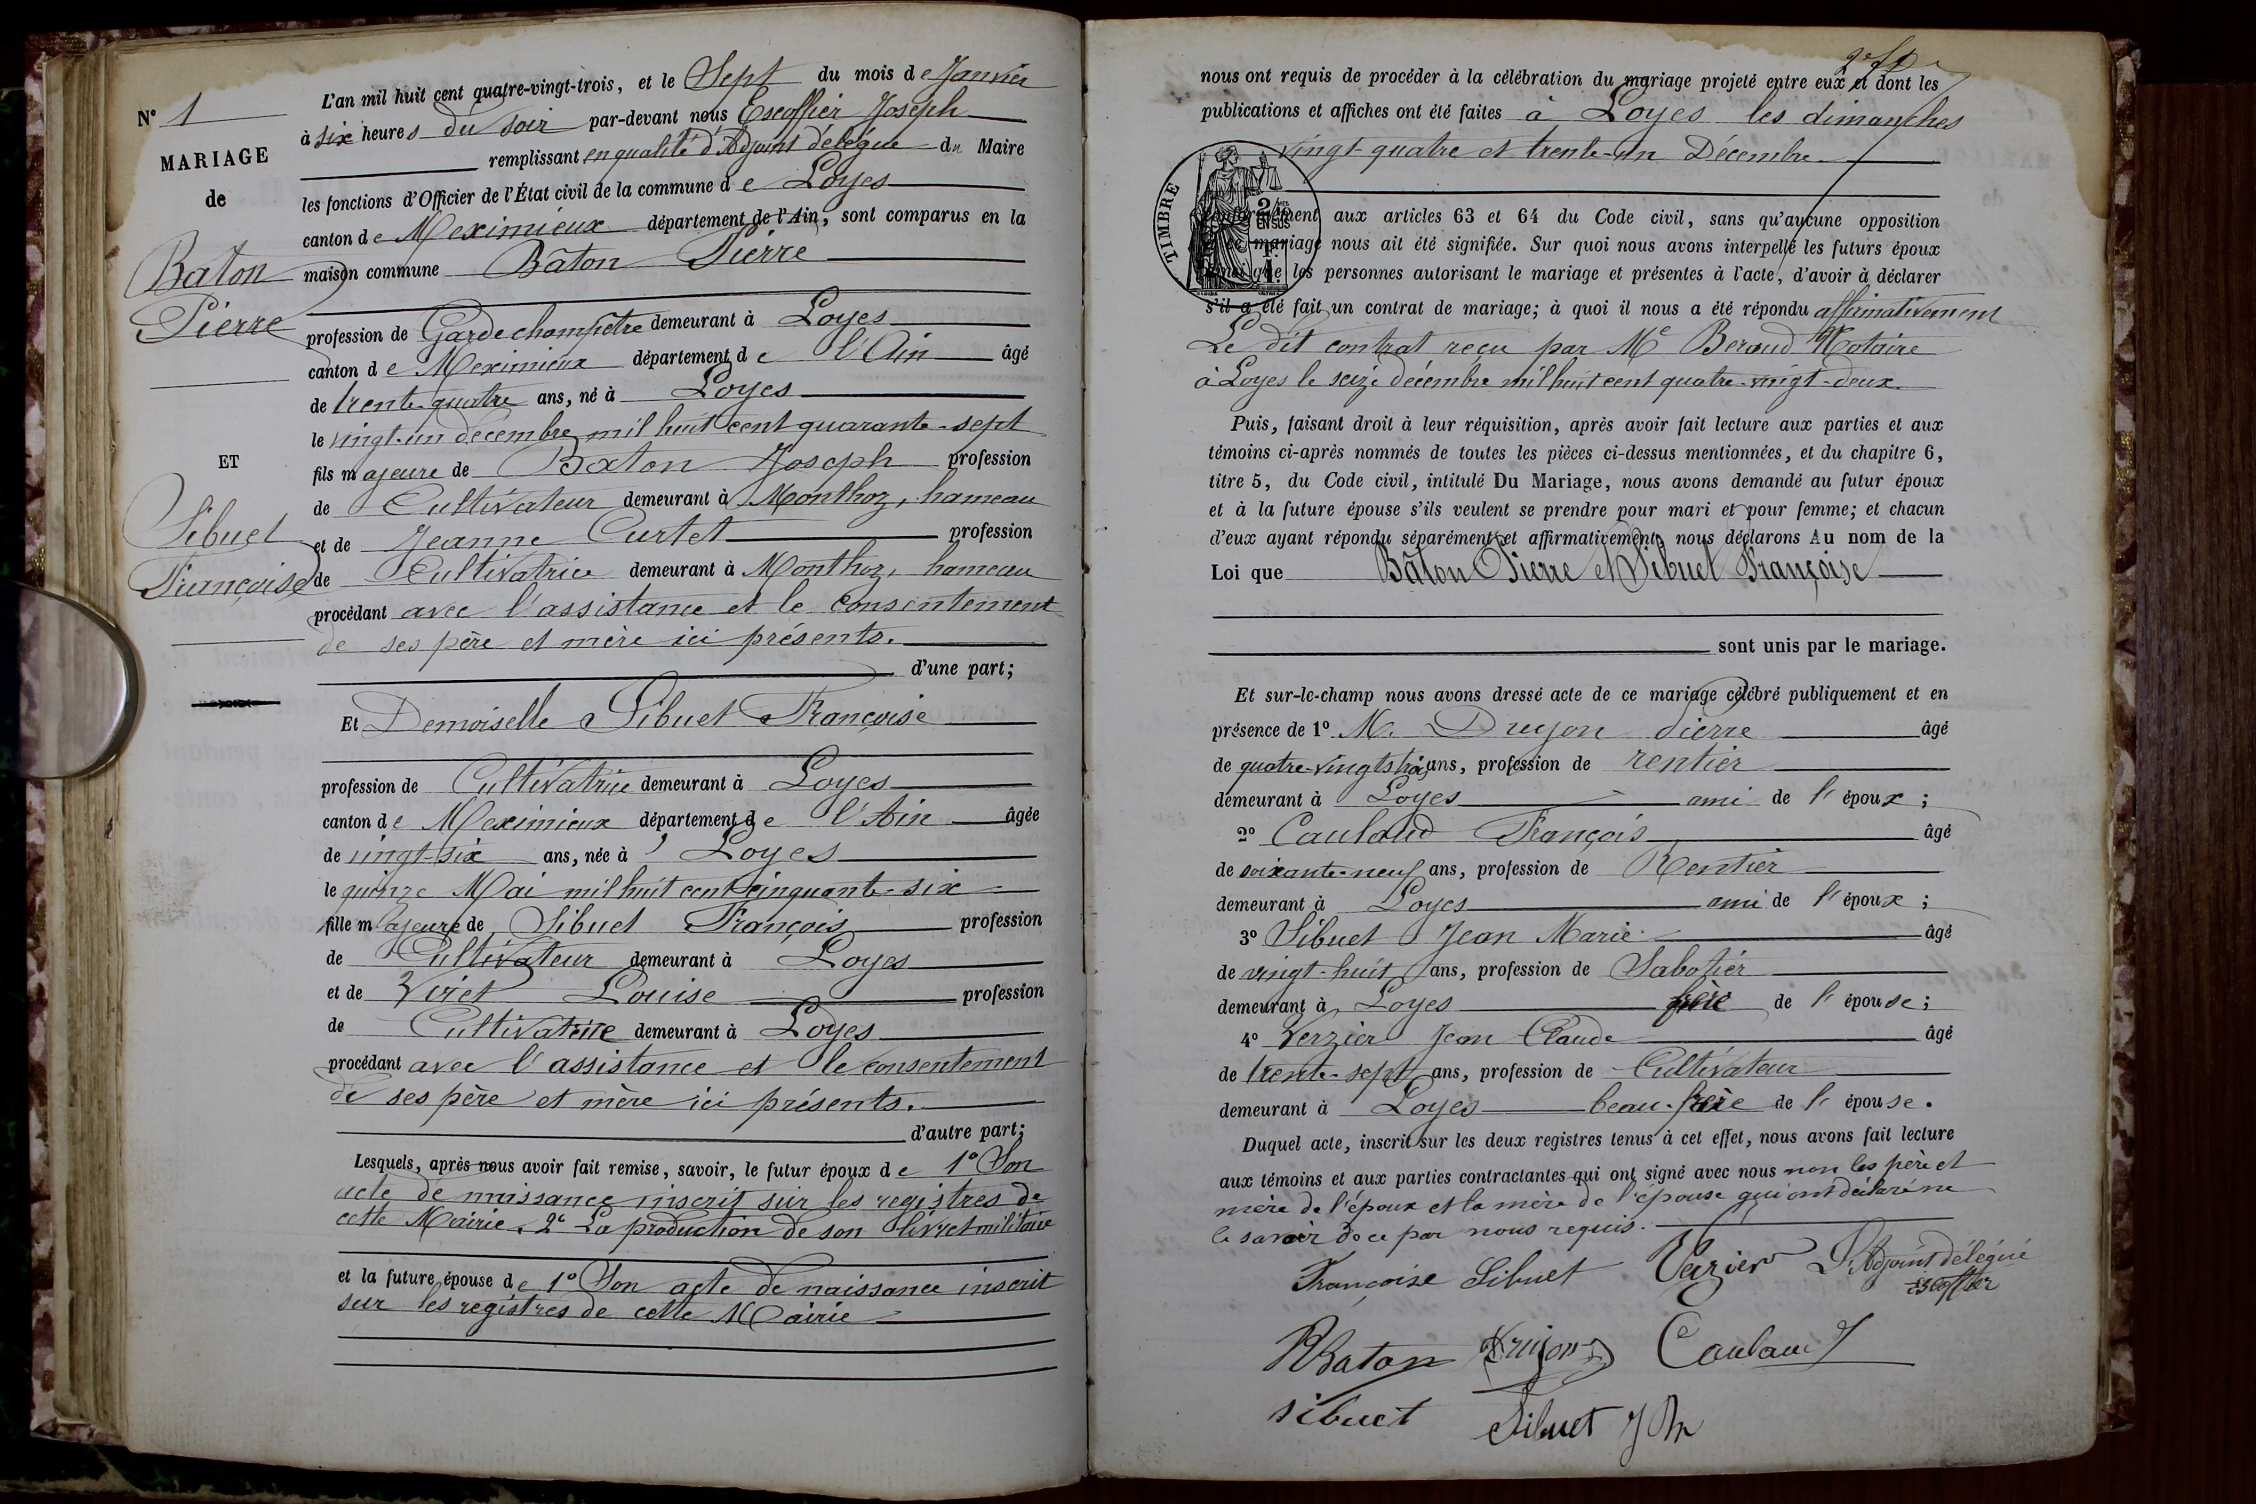 N° 1
MARIAGE
de
Baton
Pierre
ET
Sibuet
Françoise
L'an mil huit cent quatre-vingt-trois, et le Sept du mois de Janvier
à six heures du soir par-devant nous Escoffier Joseph
remplissant en qualité d'Adjoint délégué du Maire
les fonctions d'Officier de l'État civil de la commune de Loyes
canton de Meximieux département de l'Ain, sont comparus en la
maison commune Bâton Pierre
profession de Garde champêtre demeurant à Loyes
canton de Meximieux département de l'Ain âgé
de trente-quatre ans, né à Loyes
le vingt-un décembre mil huit cent quarante-sept
fils majeure de Baton Joseph profession
de Cultivateur demeurant à Monthoz, hameau
et de Jeanne Curtet profession
de Cultivatrice demeurant à Monthoz, hameau
procédant avec l'assistance et le consentement
de ses père et mère ici présents.
d'une part;
Et Demoiselle Sibuet Françoise
profession de Cultivatrice demeurant à Loyes
canton de Meximieux département de l'Ain âgée
de vingt-six ans, née à Loyes
le quinze Mai mil huit cent cinquante-six
fille majeure de Sibuet François profession
de Cultivateur demeurant à Loyes
et de Viret Louise profession
de Cultivatrice demeurant à Loyes
procédant avec l'assistance et le consentement
de ses père et mère ici présents.
d'autre part;
Lesquels, après nous avoir fait remise, savoir, le futur époux de 1° Son
acte de naissance inscrit sur les registres de
cette Mairie. 2° La production de son livret militaire
et la future épouse de 1° Son acte de naissance inscrit
sur les registres de cette Mairie
nous ont requis de procéder à la célébration du mariage projeté entre eux et dont les
publications et affiches ont été faites à Loyes les dimanches
vingt-quatre et trente-un Décembre
TIMBRE
2/10 EN SUS
conformément aux articles 63 et 64 du Code civil, sans qu'aucune opposition
à ce mariage nous ait été signifiée. Sur quoi nous avons interpellé les futurs époux
ainsi que les personnes autorisant le mariage et présentes à l'acte, d'avoir à déclarer
s'il a été fait un contrat de mariage; à quoi il nous a été répondu affirmativement
Le dit contrat reçu par Me Beraud Notaire
à Loyes le seize décembre mil huit cent quatre-vingt-deux.
Puis, faisant droit à leur réquisition, après avoir fait lecture aux parties et aux
témoins ci-après nommés de toutes les pièces ci-dessus mentionnées, et du chapitre 6,
titre 5, du Code civil, intitulé Du Mariage, nous avons demandé au futur époux
et à la future épouse s'ils veulent se prendre pour mari et pour femme; et chacun
d'eux ayant répondu séparément et affirmativement, nous déclarons Au nom de la
Loi que Bâton Pierre et Sibuet Françoise
sont unis par le mariage.
Et sur-le-champ nous avons dressé acte de ce mariage célébré publiquement et en
présence de 1° M. Drujon Pierre âgé
de quatre-vingts trois ans, profession de rentier
demeurant à Loyes ami de l'époux;
2° Caulaud François âgé
de soixante-neuf ans, profession de Rentier
demeurant à Loyes ami de l'époux;
3° Sibuet Jean Marie âgé
de vingt-huit ans, profession de Sabotier
demeurant à Loyes frère de l'épouse;
4° Verzier Jean Claude âgé
de trente-sept ans, profession de Cultivateur
demeurant à Loyes beau-frère de l'épouse.
Duquel acte, inscrit sur les deux registres tenus à cet effet, nous avons fait lecture
aux témoins et aux parties contractantes qui ont signé avec nous non les père et
mère de l'époux et la mère de l'épouse qui ont déclaré ne
le savoir de ce par nous requis.
Françoise Sibuet Verzier L'Adjoint délégué
Escoffier
P Baton Drujon Caulaud
Sibuet Sibuet J M